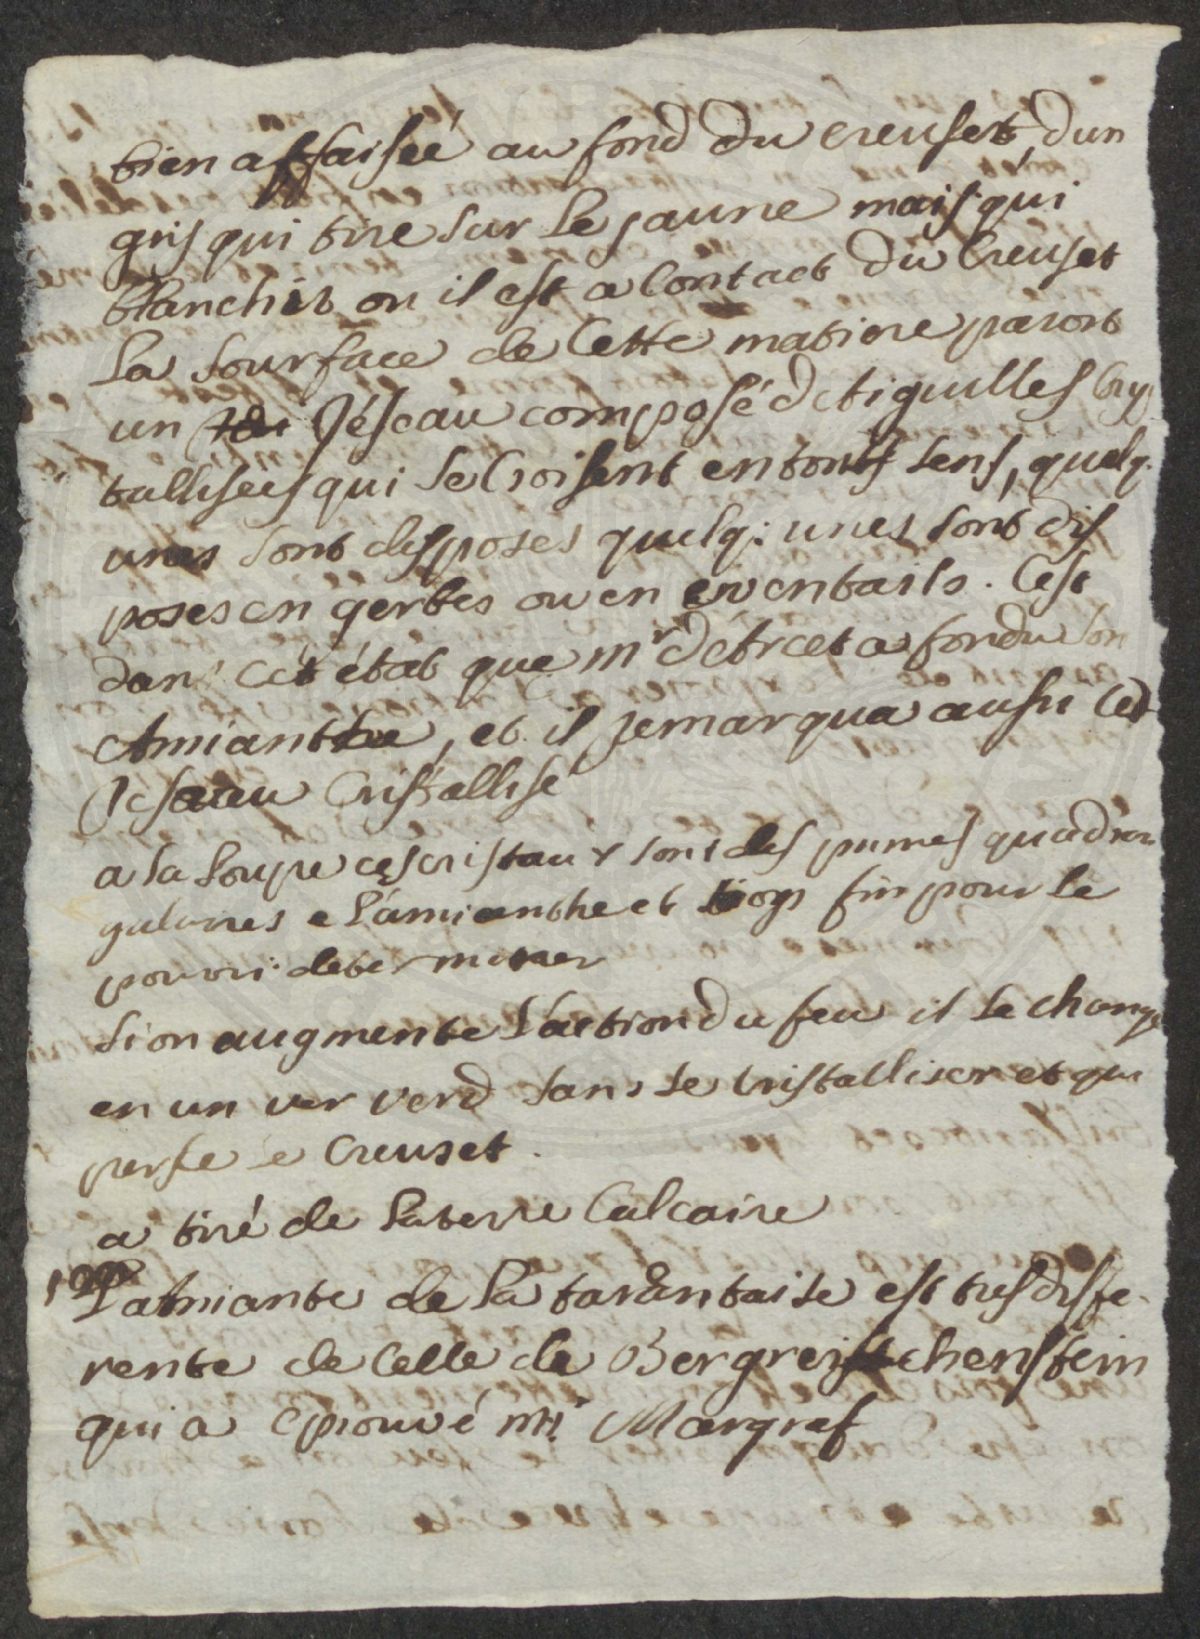 bien affaisée au fond du creuset, dun
gris qui tire sur le jaune mais qui
blanchit ou il est a Contact du Creuset
La sourface de Cette matiere paroit
un Réseau composé detiguilles Crys
tallisées qui se Croisent en touts sens, quelq.
unes sont desposes quelq: unes sont dis
poses en gerbes ou en eventails. Cest
dans cet état que mr detrcet a fondu son
Amianthe, et il remarqua aussi Cet
Resaeu Cristallisé
a la Loupe ces cristaux sont des primes quadran
gulaires e l'amianthe et trop fin pour le
pouvoir determiner
si on augmente l'action du feu il se change
en un ver verd sans se cristalliser et qui
perse le Creuset.
a tiré de la terre Calcaire
L'amiante de la tarantaise est tres diffe-
rente de Celle de Bergreischenstein
qui a eprouvé Mr. Margraf